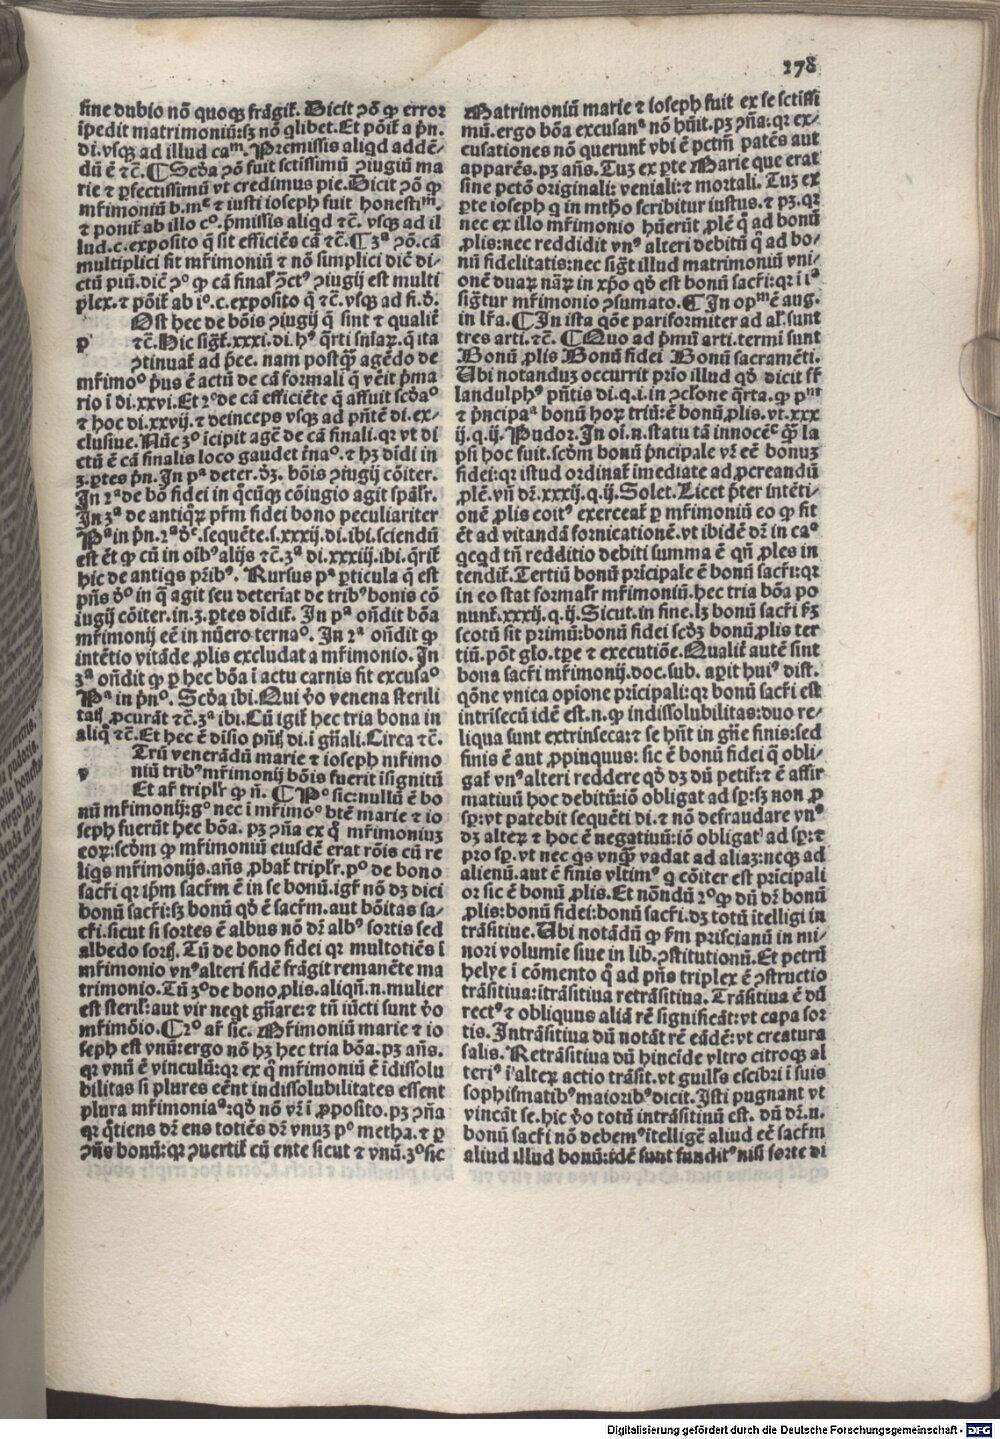 278
sine dubio nõ quoqꝫ frãgit᷑. Dicit ꝯõ ꝙ error
ĩpedit matrimoniũ:sꝫ nõ q̃libet. Et põit᷑ a pñ.
di. vsqꝫ ad illud caᵐ. Premissis aliqd addẽ⸗
dũ ẽ ⁊c̃. ¶ Scd̃a ꝯõ fuit sctissimũ ꝯiugiũ ma
rie ⁊ ꝑfectissimũ vt credimus pie. Dicit ꝯõ ꝙ
mr̃imoniũ b. mᵉ ⁊ iusti ioseph fuit honestiᵐ.
⁊ ponit᷑ ab illo cᵒ. p̃missis aliqd ⁊c̃. vsqꝫ ad il
lud. c. exposito q̃ sit efficiẽs cã ⁊c̃. ¶ 3ᵃ ꝯõ. cã
multiplici fit mr̃imoniũ ⁊ nõ simplici dic̃ di⸗
ctũ priũ. dic̃ ꝯᵒ ꝙ cã final᷑ ꝯ̃ctꝰ ꝯiugij est multi
plex. ⁊ põit᷑ ab iᵒ. c. exposito q̃ ⁊c̃. vsqꝫ ad fi. d̃.
Ost hec de bõis ꝯiugij q̃ sint ⁊ qualit᷑
p ⁊c̃. Hic sigt᷑. xxxi. di. hꝰ q̃rti sñiaꝝ. q ita
ꝯtinuat᷑ ad p̃ce. nam postqꝫ agẽdo de
mr̃imoᵒ p̃us ẽ actũ de cã formali q̃ vẽit p̃ma
rio ĩ di. xxvi. Et 2ᵒ de cã efficiẽte q̃ affuit scd̃aᵒ
⁊ hoc di. xxvij. ⁊ deinceps vsqꝫ ad pñtẽ di. ex⸗
clusiue. Nũc 3ᵒ icipit agẽ de cã finali. qꝛ vt di
ctũ ẽ cã finalis loco gaudet t̃naᵒ. ⁊ hꝫ didi in
3. ꝑtes pñ. In pᵃ deter. d̃ꝫ. bõis ꝯiugij cõiter.
In 2ᵃ de bõ fidei in q̃cũqꝫ cõiugio agit spãlr̃.
In 3ᵃ de antiqꝝ pr̃m fidei bono peculiariter
Pᵃ in pñ. 2ᵃ d̃ᵉ. sequẽte. s. xxxij. di. ibi. sciendũ
est ẽt ꝙ cũ in oĩbꝰ alijs ⁊c̃. 3ᵃ di. xxxiij. ibi. q̃rit᷑
hic de antiqs pr̃ibꝰ. Rursus pᵃ ꝑticula q̃ est
pñs d̃ᵒ in q̃ agit seu deteriat de tribꝰ bonis cõ
iugij cõiter. in. 3. ꝑtes didit᷑. In pᵃ oñdit bõa
mr̃imonij eẽ in nũero ternaᵒ. In 2ᵃ oñdit ꝙ
intẽtio vitãde ꝓlis excludat a mr̃imonio. In
3ᵃ oñdit ꝙ ꝑ hec bõa ĩ actu carnis fit excusaᵒ
Pᵃ in pñᵒ. Scd̃a ibi. Qui ṽo venena sterili
tatꝭ ꝓcurãt ⁊c̃. 3ᵃ ibi. Cũ igit᷑ hec tria bona in
aliq̃ ⁊c̃. Et hec ẽ disio pñtꝭ di. i gñali. Circa ⁊c̃.
Trũ venerãdũ marie ⁊ ioseph mr̃imo
v niũ tribꝰ mr̃imonij bõis fuerit isignitũ
Et ar̃ triplr̃ ꝙ ñ. ¶ Pᵒ sic: nullũ ẽ bo
nũ mr̃imonij: gᵒ nec i mr̃imõᵒ btẽ marie ⁊ io
seph fuerũt hec bõa. pꝫ ꝯña ex q̃ mr̃imoniuꝫ
eoꝝ: scd̃m ꝙ mr̃imoniũ eiusdẽ erat rõis cũ re
liqs mr̃imonijs. añs ꝓbat᷑ triplr̃. pᵒ de bono
sacr̃i qꝛ ip̃m sacr̃m ẽ in se bonũ. igr̃ nõ dꝫ dici
bonũ sacr̃i: sꝫ bonũ qd̃ ẽ sacr̃m. aut bõitas sa⸗
cr̃i. sicut si sortes ẽ albus nõ dr̃ albꝰ sortis sed
albedo sortꝭ. Tũ de bono fidei qꝛ multotiẽs ĩ
mr̃imonio vnꝰ alteri fidẽ frãgit remanẽte ma
trimonio. Tũ 3ᵒ de bono ꝓlis. aliqñ. n. mulier
est steril᷑: aut vir neqt gñare: ⁊ tñ iũcti sunt ṽo
mr̃imõio. ¶ 2ᵒ ar̃ sic. Mr̃imoniũ marie ⁊ io
seph est vnũ: ergo nõ hꝫ hec tria bõa. pꝫ añs.
qꝛ vnũ ẽ vinculũ: qꝛ ex q̃ mr̃imoniũ ẽ ĩdissolu
bilitas si plures eẽnt indissolubilitates essent
plura mr̃imoniaᵃ: qd̃ nõ vr̃ ĩ ꝓposito. pꝫ ꝯñа
qꝛ q̃tiens dr̃ ens totiẽs dr̃ vnuꝫ pᵒ metha. ⁊ ꝑ
ꝯñs bonũ: qꝛ ꝯuertit᷑ cũ ente sicut ⁊ vnũ. 3ᵒ sic
Matrimoniũ marie ⁊ ioseph fuit ex se sctissi
mũ. ergo bõa excusanᵃ nõ hũit. pꝫ ꝯñа: qꝛ ex⸗
cusationes nõ querunt᷑ vbi ẽ pctm̃ patẽs aut
apparẽs. pꝫ añs. Tuꝫ ex ꝑte Marie que erat
sine pctõ originali: veniali: ⁊ mortali. Tuꝫ ex
ꝑte ioseph q in mth̃o scribitur iustus. ⁊ pꝫ. qꝛ
nec ex illo mr̃imonio hũerũt ꝓlẽ q̃ ad bonũ
ꝓlis: nec reddidit vnꝰ alteri debitũ q̃ ad bo⸗
nũ fidelitatis: nec sigt̃ illud matrimoniũ vni⸗
onẽ duaꝝ nãꝝ in xp̃o qd̃ est bonũ sacr̃i: qꝛ iᵃ
sigt̃ur mr̃imonio ꝯsumato. ¶ In opᵐ ẽ aug.
in lr̃a. ¶ In ista qõe pariformiter ad al᷑. sunt
tres arti. ⁊c̃. ¶ Quo ad p̃mũ arti. termi sunt
Bonũ ꝓlis Bonũ fidei Bonũ sacramẽti.
Ubi notanduꝫ occurrit prio illud qd̃ dicit fr̃
landulphꝰ pñtis di. q. i. in ꝯclone q̃rta. ꝙ pᵐ
⁊ p̃ncipaᵃ bonũ hoꝝ triũ: ẽ bonũ ꝓlis. vt. xxx
ij. q. ij. Pudoꝛ. In oĩ. n. statu tã innocẽᵉ qꝫ la
psi hoc fuit. scd̃m bonũ p̃ncipale vr̃ eẽ bonuꝫ
fidei: qꝛ istud ordinat᷑ imediate ad ꝓcreandũ
ꝓlẽ. vñ dr̃. xxxij. q. ij. Solet. Licet p̃ter intẽti⸗
onẽ ꝓlis coitꝰ exerceat᷑ ꝑ mr̃imoniũ eo ꝙ fit
ẽt ad vitandã fornicationẽ. vt ibidẽ dr̃ in caᵒ
qcqd tñ redditio debiti summa ẽ qñ ꝓles in
tendit᷑. Tertiũ bonũ pricipale ẽ bonũ sacr̃i: qꝛ
in eo stat formalr̃ mr̃imoniũ. hec tria bõa po
nunt᷑. xxxij. q. ij. Sicut. in fine. lꝫ bonũ sacr̃i ẜꝫ
scotũ sit primũ: bonũ fidei scd̃ꝫ bonũ ꝓlis ter
tiũ. põt glo. tꝑe ⁊ executiõe. Qualit᷑ autẽ sint
bona sacr̃i mr̃imonij. doc. sub. aꝑit huiꝰ dist.
qõne vnica opione pricipali: qꝛ bonũ sacr̃i est
intrisecũ idẽ est. n. ꝙ indissolubilitas: duo re⸗
liqua sunt extrinseca: ⁊ se hñt in gñe finis: sed
finis ẽ aut ꝓpinquus: sic ẽ bonũ fidei q̃ obli⸗
gat᷑ vnꝰ alteri reddere qd̃ dꝫ dũ petit᷑: ⁊ ẽ affir
matiuũ hoc debitũ: iõ obligat ad sꝑ: sꝫ non ꝓ
sꝑ: vt patebit sequẽti di. ⁊ nõ defraudare vnꝰ
dꝫ alteꝝ ⁊ hoc ẽ negatiuũ: iõ obligat᷑ ad sꝑ: ⁊
pro sꝑ. vt nec qs vnqꝫ vadat ad aliaꝫ: neqꝫ ad
alienũ. aut ẽ finis vltimꝰ q cõiter est pricipali
or sic ẽ bonũ ꝓlis. Et nõndũ 2ᵒ ꝙ dũ dr̃ bonũ
ꝓlis: bonũ fidei: bonũ sacr̃i. dꝫ totũ itelligi in
trãsitiue. Ubi notãdũ ꝙ ẜm priscianũ in mi⸗
nori volumie siue in lib. ꝯstitutionũ. Et petrũ
helye ĩ cõmento q̃ ad pñs triplex ẽ ꝯstructio
trãsitiua: itrãsitiua retrãsitiua. Trãsitiua ẽ dũ
rectꝰ ⁊ obliquus aliã rẽ significãt: vt capa sor
tis. Intrãsitiua dũ notãt rẽ eãdẽ: vt creatura
salis. Retrãsitiua dũ hincide vltro citroqꝫ al
teriꝰ ĩ alteꝝ actio trãsit. vt guill᷑s escibri ĩ suis
sophismatibꝰ maioribꝰ dicit. Isti pugnant vt
vincãt se. hic ṽo totũ intrãsitiuũ est. dũ dr̃. n.
bonũ sacr̃i nõ debemꝰ itelligẽ aliud eẽ sacr̃m
aliud illud bonũ: idẽ sunt funditꝰ nisi forte di
Digitalisierung gefördert durch die Deutsche Forschungsgemeinschaft - DFG